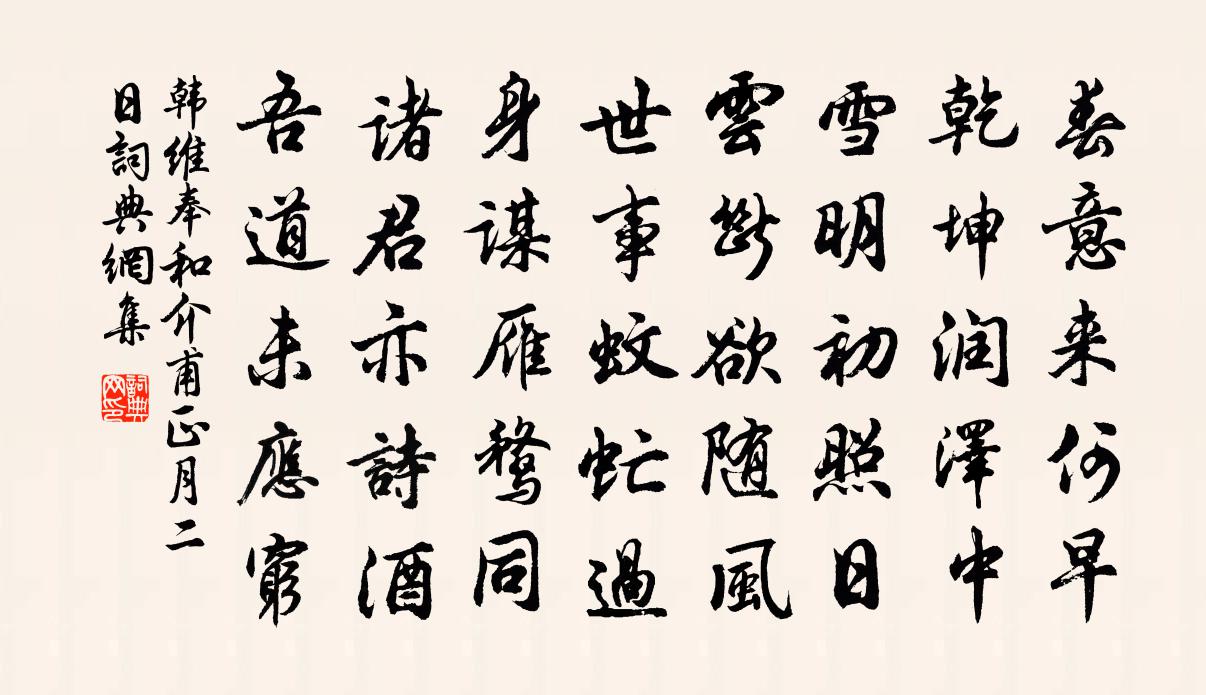 春意来何早
乾坤润澤中
雪明初照日
雲斷欲随風
世事蚊虻過
身謀雁鶩同
诸君亦詩酒
吾道未應窮
韩维奉和介甫正月二
日詞典網集
詞典
网印